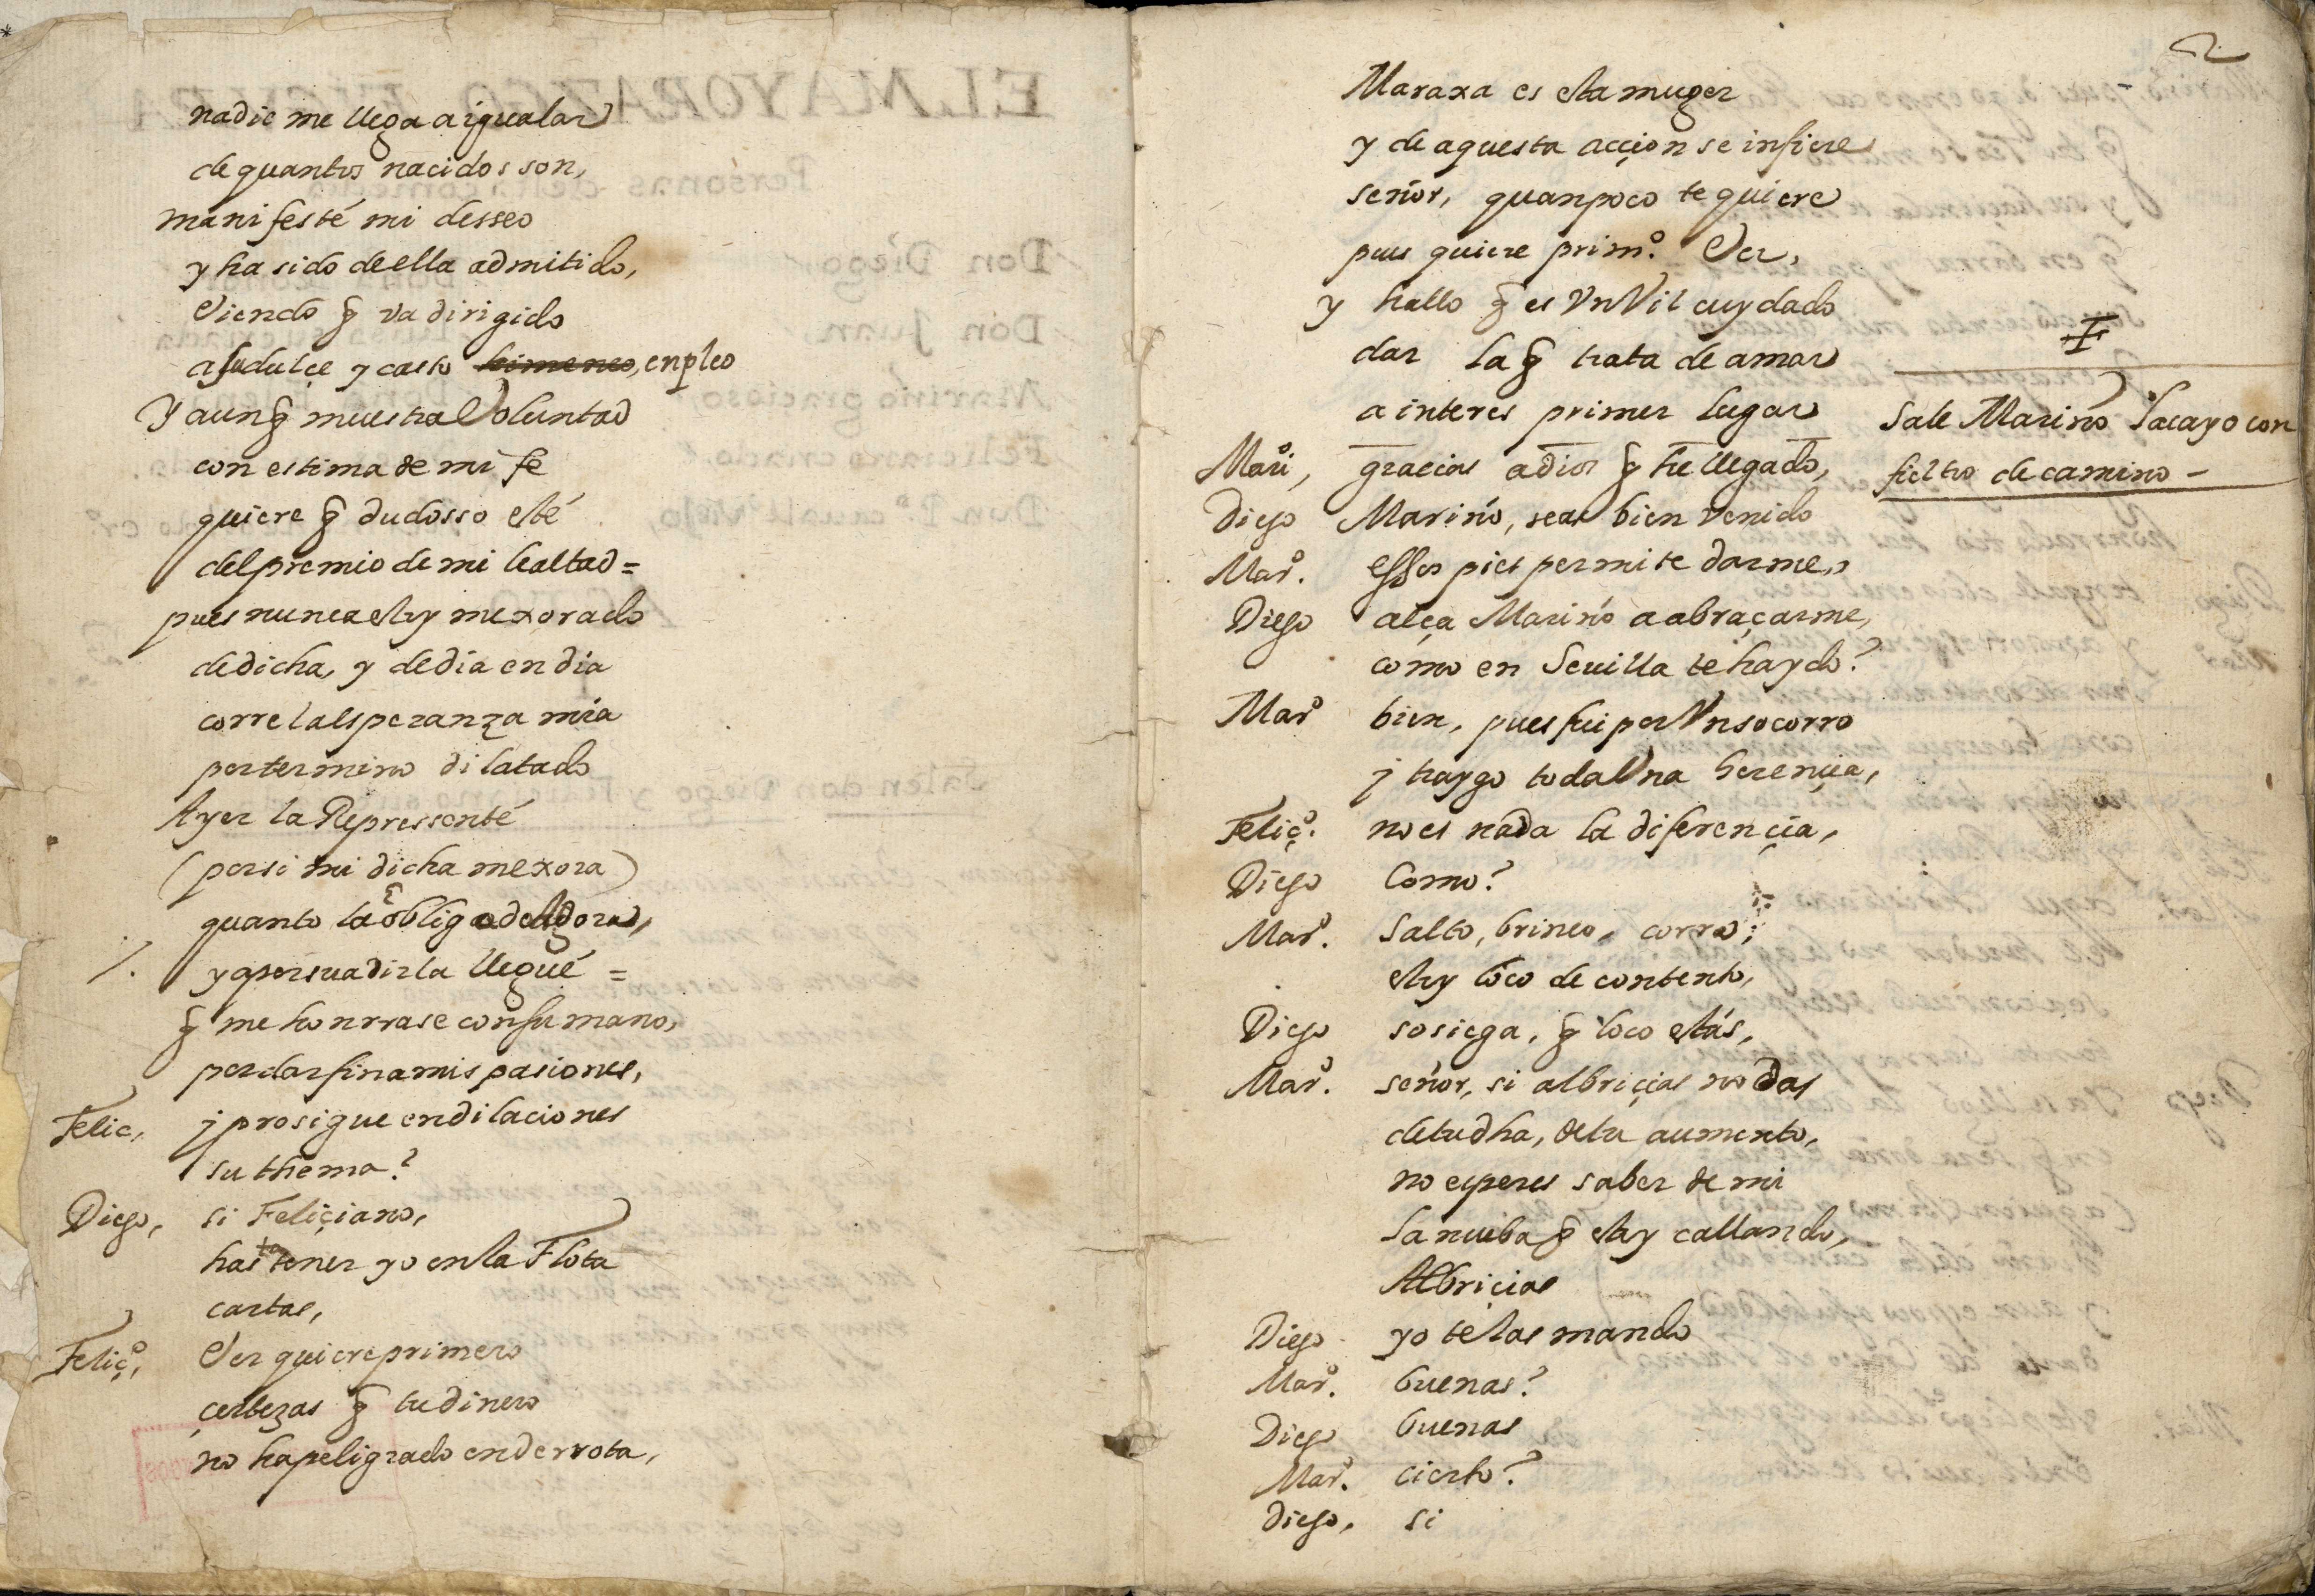 nadie me llega a igualar
de quantos nacidos son,
manifesté mi desseo
y ha sido de ella admitido,
Viendo q̃ va dirigido
a su dulçe y casto himeneo, enpleo
Y aunq̃ muestra Voluntad
con estima de mi fe
quiere q̃ dudosso esté
del premio de mi lealtad =
pues nunca estoy mexorado
de dicha, y de dia en dia
corre la esperanza mia
por termino dilatado
Ayer la Repressenté
(por si mi dicha mexora)
quanto la obliga
y a persuadirla llegué =
q̃ me honrrase con su mano,
por dar fin a mis pasiones,
Felic, j prosigue en dilaciones
su thema?
Diego, si Feliçiano,
hasta tener yo en la Flota
cartas,
Feliç.º, Ver quiere primero
çertezas q̃ tu dinero
no ha peligrado en derrota,
2
Maraxa es esta muger
y de aquesta acçion se infiere
señor, quan poco te quiere
pues quiere prim.º Ver,
y hallo q̃ es Vn Vil cuydado
dar la q̃ trata de amar
a interes primer lugar
Sale Mariño lacayo con
fieltro de camino -
Mari, gracias a dios q̃ he llegado,
Diego Mariño, seas bien venido
Marº. essos pies permite darme,
Diego alça Mariño a abraçarme,
como en Seuilla te ha ydo?
Marº bien, pues fui por Vn socorro
j traygo toda Vna herençia,
Feliçº. no es nada la diferençia,
Diego Como?
Marº. Salto, brinco, corro;
estoy loco de contento,
Diego sosiega, q̃ loco estás,
Marº. señor, si albriçias no das
de tu dha, de tu aumento,
no esperes saber de mi
la nueba q̃ estoy callando,
Albriçias
Diego yo te las mando
Marº. buenas?
Diego buenas
Marº. cierto?
Diego, si